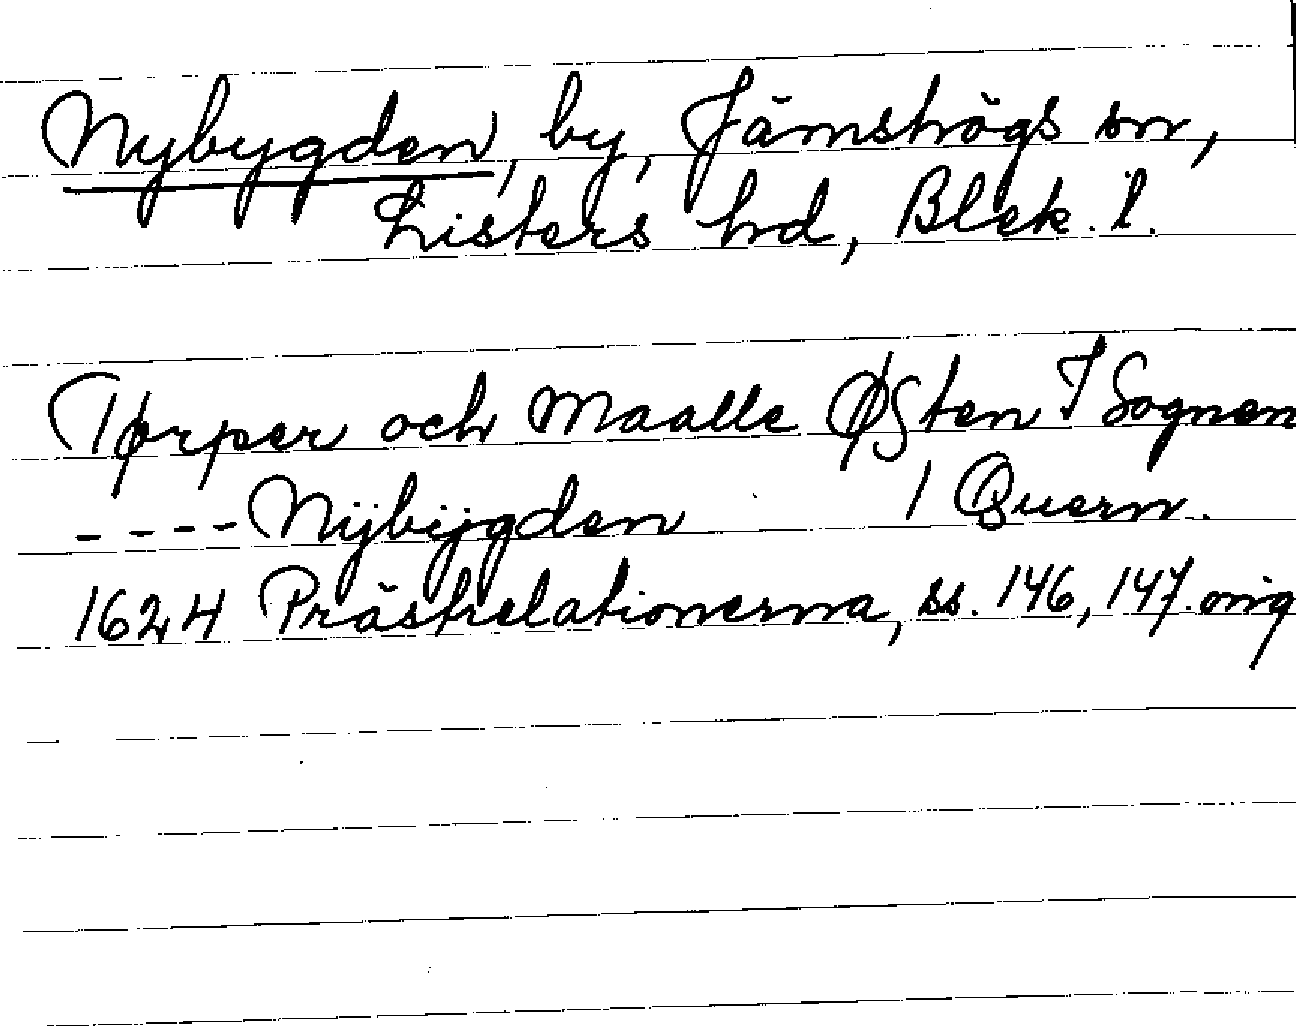 Nybygden, by, Jämshögs sn,
Listers hd, Blek. l.
Tørper och Maalle Østen I Sognen
---- Nijbijgden 1 Quern.
1624 Prästrelationerna, ss. 146, 147. orig